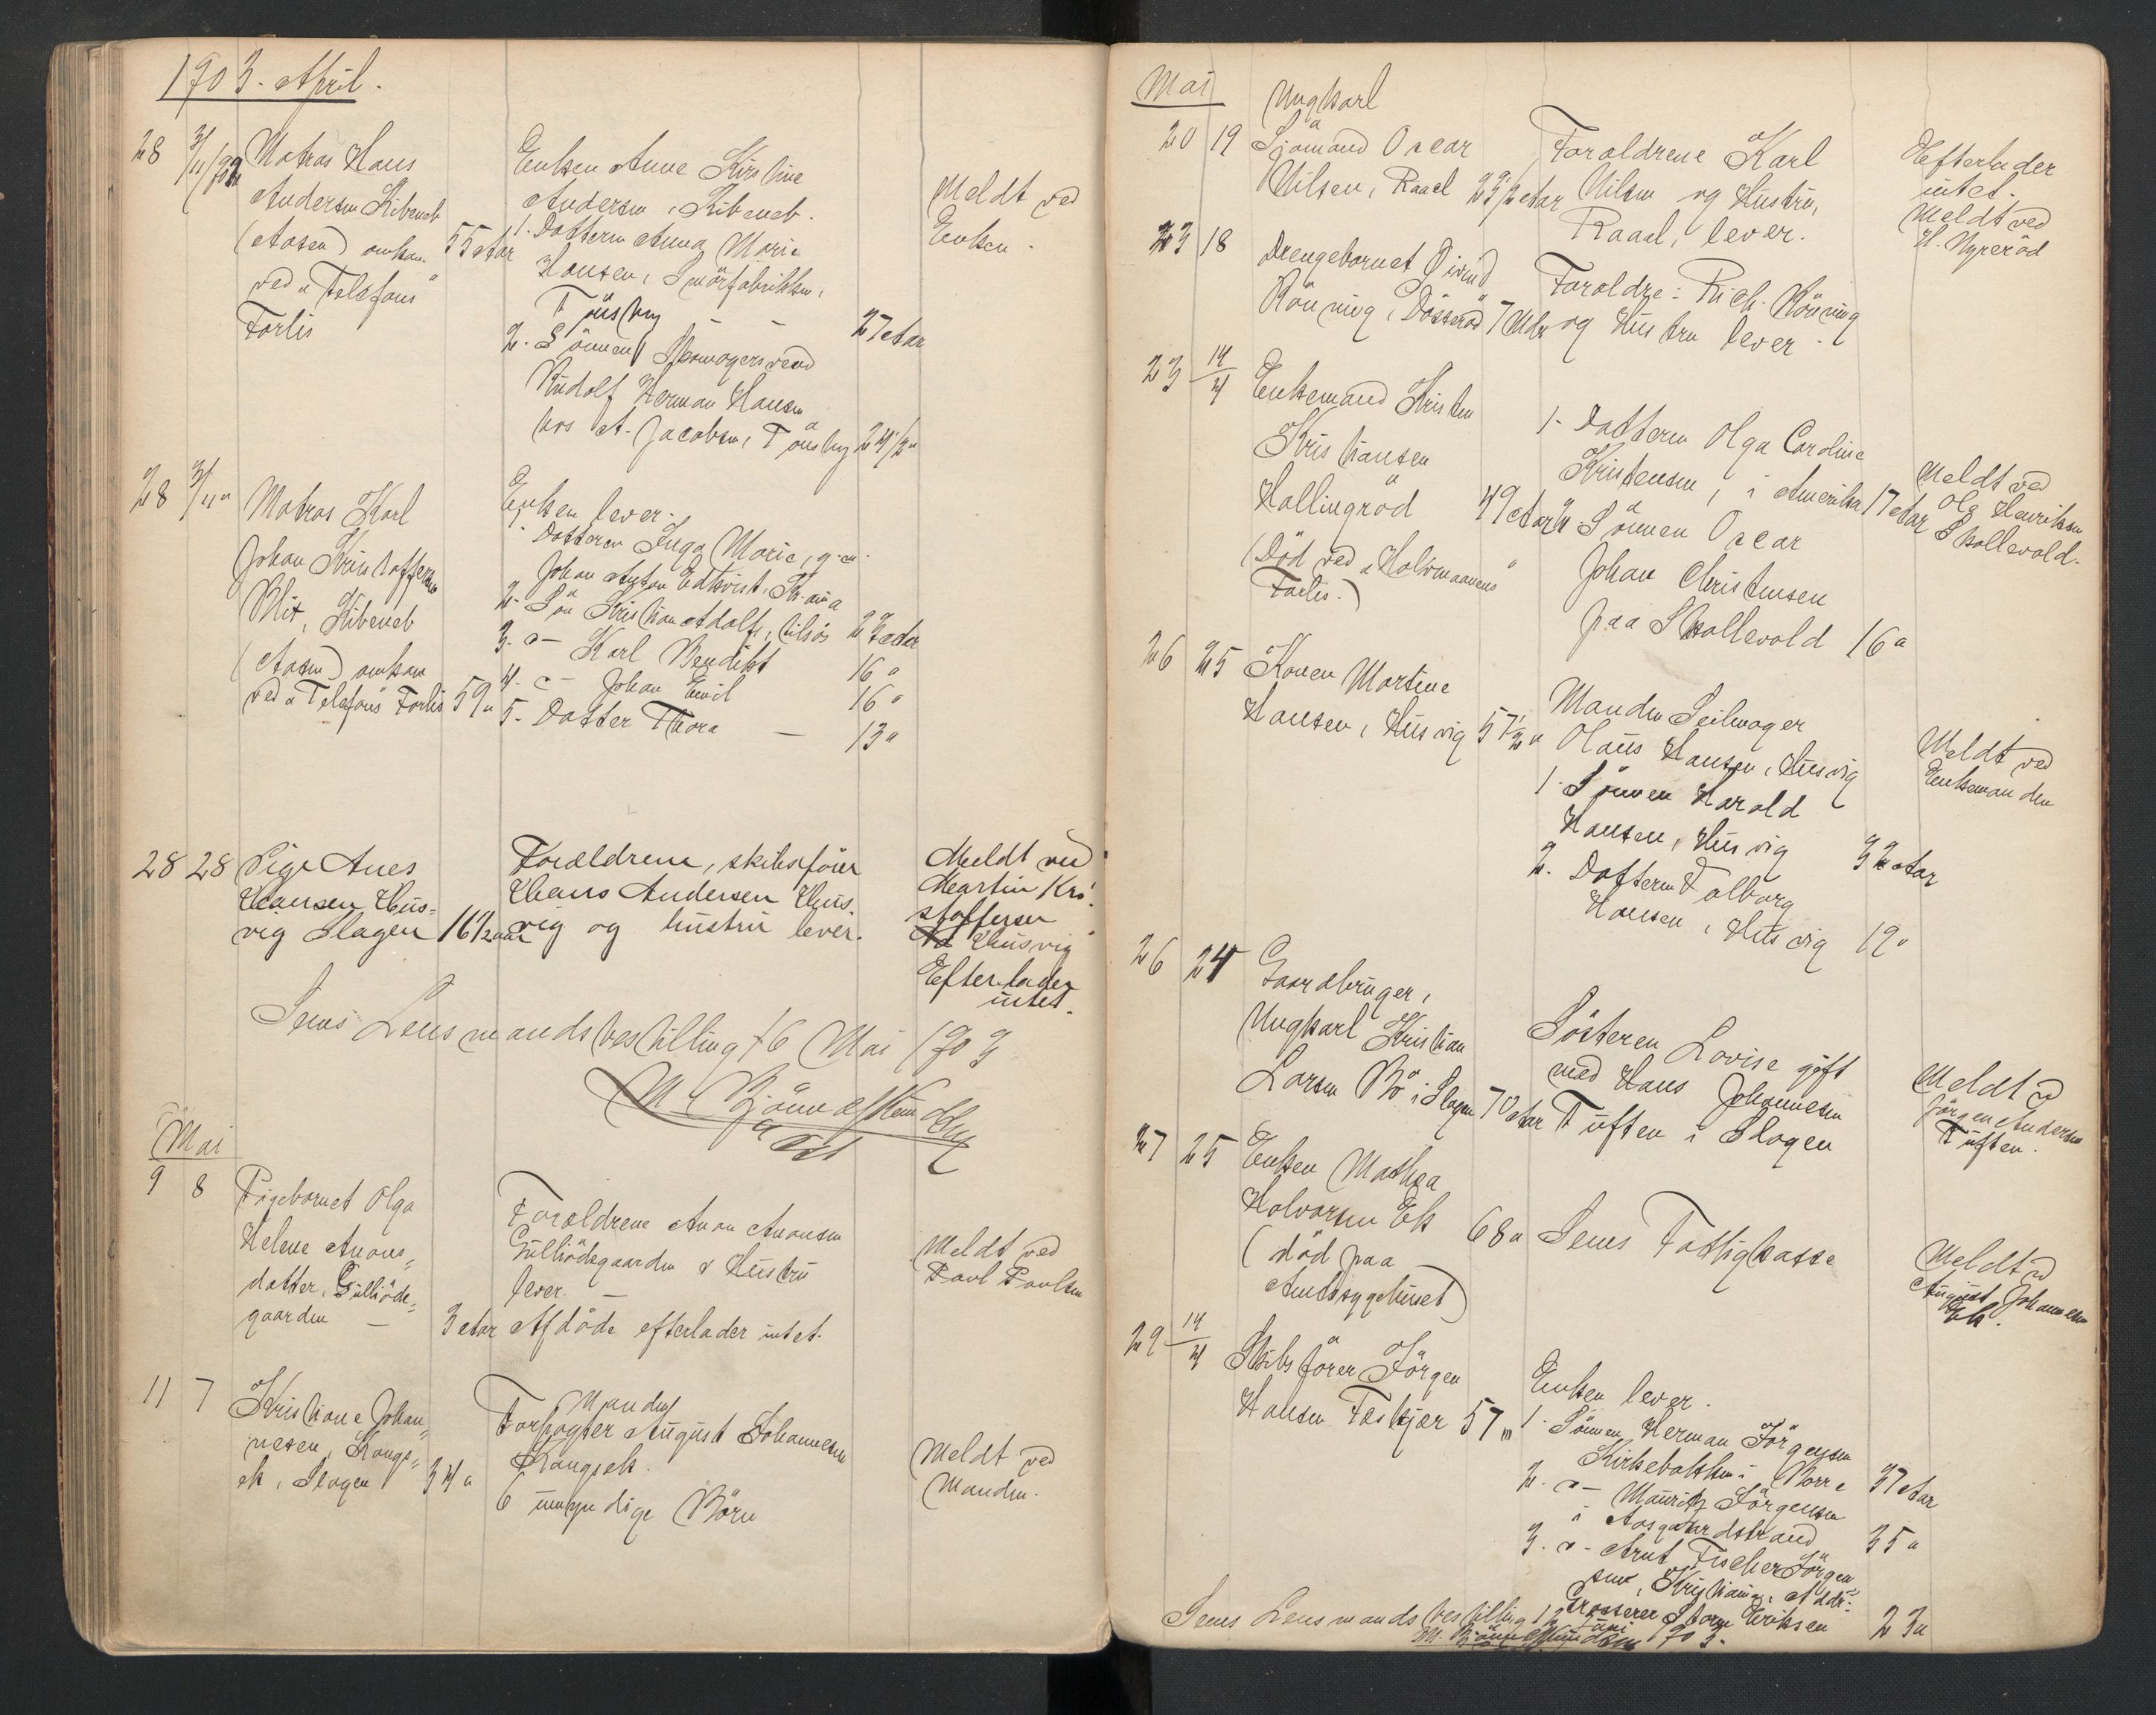 1903. April.
28 3/11/02 Matros Hans
Andersen Kibeneb
(Aasen) omkom 55 Aar
ved "Telefons"
Forlis
Enken Anne Kirstine
Andersen, Kibeneb.
1. Datteren Anna Marie
Hansen, Smörfabrikken,
Tönsberg — — 27 Aar
2. Sönnen Skomagersvend
Rudolf Herman Hansen
hos A. Jacobsen, Tönsberg 24 1/2 "
Meldt ved
Enken.
28 3/11 " Matros Karl
Johan Kristoffersen
Blix, Kibeneb
(Aasen) omkom
ved "Telefons" Forlis 59 "
Enken lever.
1. Datteren Inga Marie, g. m.
Johan Anton Edkvist, Kr.ania
2. Sön Kristian Adolf, tilsjös 23 Aar
3. " — Karl Benedikt 16 "
4. " — Johan Emil 16 "
5. Datter Thora — 13 "
28 28 Pige Anes
Hansen Hus-
vig Slagen 16 1/2 aar
Forældrene, skibsförer
Hans Andersen Hus-
vig og hustru lever.
Meldt ved
Martin Kri-
stoffersen
Husvig
Efterlader
intet.
Sems Lensmandsbestilling 16 Mai 1903
M. Bjönnes
Mai
9 8 Pigebarnet Olga
Helene Anons-
datter, Gulliöde-
gaarden — 3 Aar
Forældrene Anon Anonsen
Gulliödegaarden & Hustru
lever. —
Afdöde efterlader intet.
Meldt ved
Paul Paulsen
11 7 Kristiane Johan-
nesen, Kongs-
ek, Slagen 34 "
Manden
Forpagter August Johannesen
Kongsek.
6 umyndige Börn
Meldt ved
Manden.
Mai
Ungkarl
20 19 Sjömand Oscar
Nilsen, Raael 23 1/2 Aar
Forældrene Karl
Nilsen og Hustru,
Raael, lever.
Efterlader
intet.
Meldt ved
H. Nyreröd
23 18 Drengebarnet Øivind
Rönning, Dösseröd 7 Mdr
Forældre: Rich. Rönning
og Hustru lever.
23 14/4 Enkemand Kristen
Kristiansen
Hollingröd 49 Aar
(Död ved "Halvmaanens"
Forlis.)
1. Datteren Olga Caroline
Kristensen, i Amerika 17 Aar
2. Sönnen Oscar
Johan Christensen
paa Skallevold 16 "
Meldt ved
Ole Henriksen
Skallevold.
26 25 Konen Martine
Hansen, Husvig 57 1/2 "
Manden Seilmager
Olaus Hansen, Husvig
1. Sönnen Harald
Hansen, Husvig 32 Aar
2. Datteren Valborg
Hansen, Husvig 19 "
Meldt ved
Enkemanden
26 24 Gaardbruger,
Ungkarl Kristian
Larsen Bö i Slagen 70 Aar
Sösteren Lovise gift
med Hans Johannesen
Tuften i Slagen
Meldt v
Jörgen Andersen
Tuften.
27 25 Enken Mathea
Halvorsen Ek 68 "
(död paa
Amtssygehuset)
Sems Fattigkasse
Meldt v
August Johannesen
Ek.
29 14/4 Skibsförer Jörgen
Hansen Foskjær 57 "
Enken lever.
1. Sönnen Herman Jörgensen
Kirkebakken i Borre 37 Aar
2. " — Mauritz Jörgensen
i Aasgaardstrand 35 "
3. " — Arnt Fischer Jörgen-
sen, Kristiania, Addr:
Grosserer Storm Eriksen 23 "
Sems Lensmandsbestilling 12 Juni 1903.
M. Bjönnes